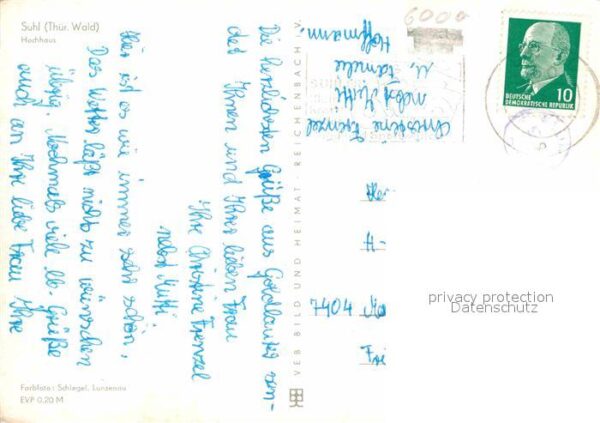 Suhl (Thür. Wald)
Hochhaus
Die herzlichsten Grüße aus Goldlauter sen-
det Ihnen und Ihrer lieben Frau
Ihre Christine Frenzel
nebst Mutti.
Hier ist es wie immer sehr schön,
Das Wetter läßt nichts zu wünschen
übrig. Nochmals viele lb. Grüße
auch an Ihre liebe Frau Ihre
Christine Frenzel
nebst Mutti
u. Familie
Hoffmann.
Farbfoto: Schlegel, Lunzenau
EVP 0,20 M
VEB BILD UND HEIMAT · REICHENBACH i. V.
6000
10
DEUTSCHE
DEMOKRATISCHE REPUBLIK
Her
H-
7404
privacy protection
Datenschutz